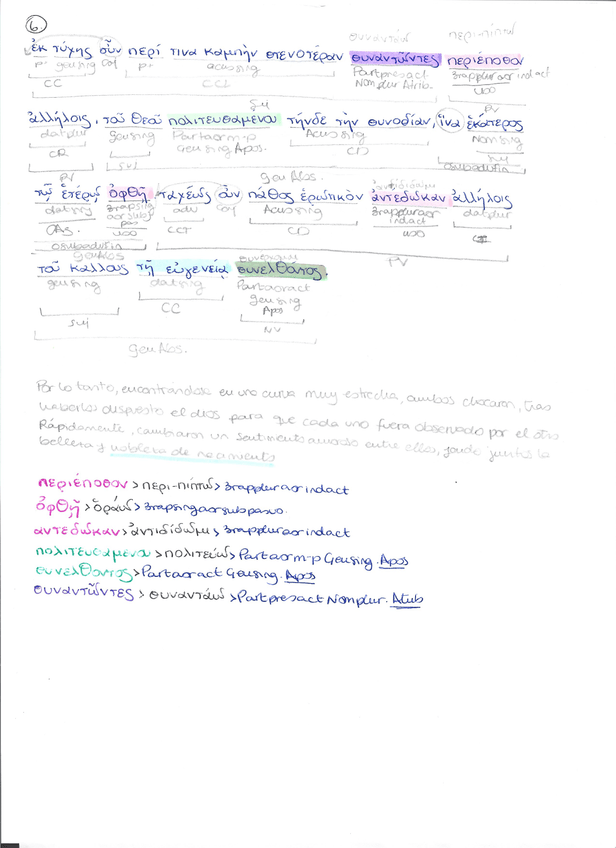 6
συναντάω περι-πίπτω
ἐκ τύχης οὖν περί τινα καμπὴν στενοτέραν συναντῶντες περιέπεσον
p. gensing Coj p. acussing Partpresact 3rapplur aor indact
Nomplur Atrib. uso
CC CCL PV
Suj
ἀλλήλοις, τοῦ θεοῦ πολιτευσαμένου τήνδε τὴν συνοδίαν, ἵνα ἑκάτερος
datplur gensing Partaorm-p Acussing Nomsing
Gensing Apos.
CR Suj CD Suj
PV Gen Abs. Osubadvfin
τῷ ἑτέρῳ ὀφθῇ. ταχέως οὖν πάθος ἐρωτικὸν ἀντέδωκαν ἀλλήλοις
datsing 3rapsing adv Coj Acussing 3rapplur aor datplur
aor subj indact
pas uso uso
CAg. CCT CD
Osubadvfin PV
τοῦ κάλλους τῇ εὐγενείᾳ συνελθόντος.
gensing datsing Partaoract
gensing
Apos
Suj CC NV
Gen Abs.
Por lo tanto, encontrándose en una curva muy estrecha, ambos chocaron, tras
haberlos dispuesto el dios para que cada uno fuera observado por el otro
Rápidamente, cambiaron un sentimiento amoroso entre ellos, yendo juntos la
belleza y nobleza de nacimiento
περιέποσον > περι-πίπτω > 3rapplur aor indact
ὀφθῇ > ὁράω > 3rapsing aor sub pasivo.
αντεδωκαν > ἀντιδίδωμι > 3rapplur aor indact
πολιτευσαμενου > πολιτεύω > Partaor m-p Gensing. Apos
συνελθοντος > Partaoract Gensing. Apos
συναντῶντες > συναντάω > Partpresact Nomplur. Atrib